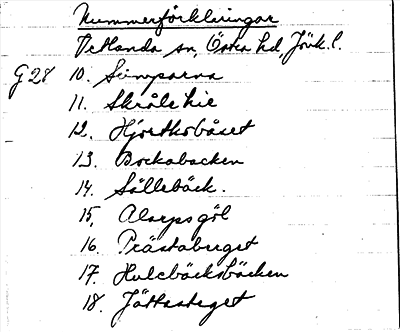 Nummerförklaringar
Vetlanda sn, Östra hd, Jönk. l.
G28 10. Sumparna
11. Skråle hie
12. Hjortkobåset
13. Bockabacken
14. Sållebäck.
15. Alarps göl
16. Prästaberget
17. Hulebäcksbäcken
18. Jättasteget